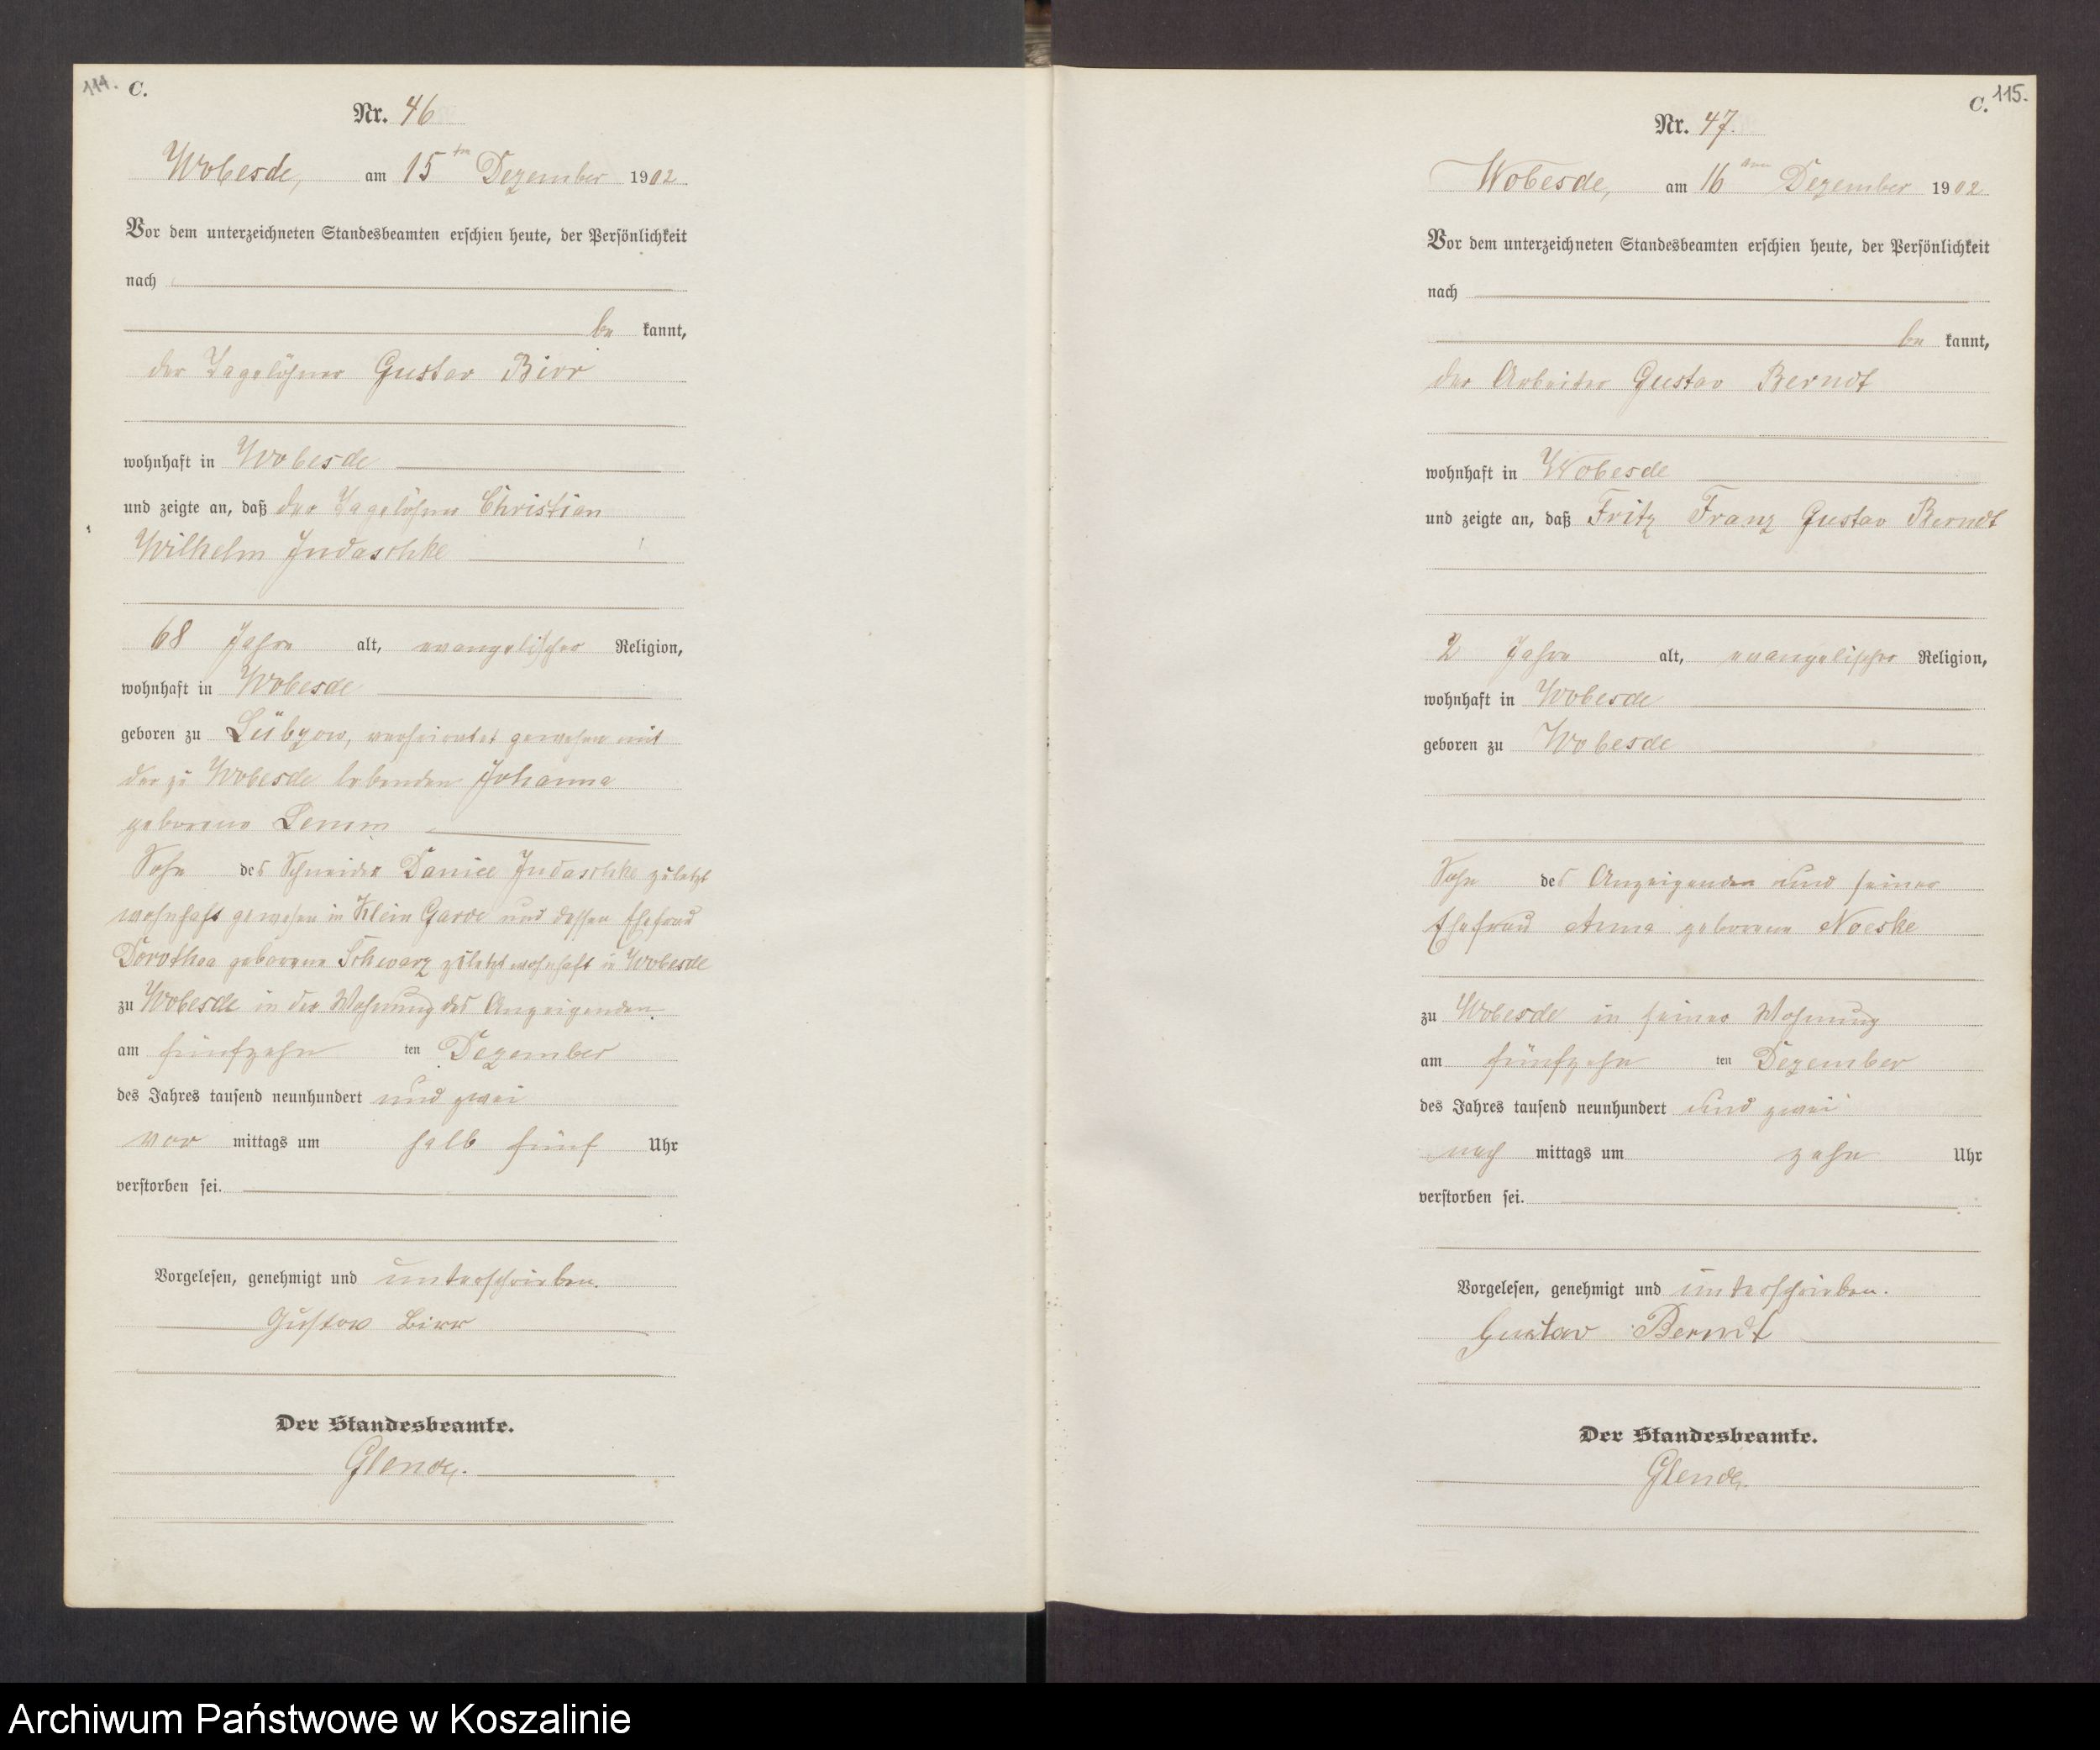 114. C.
Nr. 46
Wobesde, am 15ten Dezember 1902
Vor dem unterzeichneten Standesbeamten erschien heute, der Persönlichkeit
nach
be kannt,
der Tagelöhner Gustav Birr
wohnhaft in Wobesde
und zeigte an, daß der Tagelöhner Christian
Wilhelm Judaschke
68 Jahre alt, evangelischer Religion,
wohnhaft in Wobesde
geboren zu Lübzow, verheiratet gewesen mit
der zu Wobesde lebenden Johanna
geborene Lemm
Sohn des Schneider Daniel Judaschke zuletzt
wohnhaft gewesen in Klein Garde und dessen Ehefrau
Dorothea geborene Schwarz zuletzt wohnhaft in Wobesde
zu Wobesde in der Wohnung des Anzeigenden
am fünfzehn ten Dezember
des Jahres tausend neunhundert und zwei
vor mittags um halb fünf Uhr
verstorben sei.
Vorgelesen, genehmigt und unterschrieben.
Gustav Birr
Der Standesbeamte.
Glende.
C. 115.
Nr. 47.
Wobesde, am 16ten Dezember 1902
Vor dem unterzeichneten Standesbeamten erschien heute, der Persönlichkeit
nach
be kannt,
der Arbeiter Gustav Berndt
wohnhaft in Wobesde
und zeigte an, daß Fritz Franz Gustav Berndt
2 Jahre alt, evangelischer Religion,
wohnhaft in Wobesde
geboren zu Wobesde
Sohn des Anzeigenden und seiner
Ehefrau Anna geborene Noeske
zu Wobesde in seiner Wohnung
am fünfzehn ten Dezember
des Jahres tausend neunhundert und zwei
nach mittags um zehn Uhr
verstorben sei.
Vorgelesen, genehmigt und unterschrieben.
Gustav Berndt
Der Standesbeamte.
Glende
Archiwum Państwowe w Koszalinie